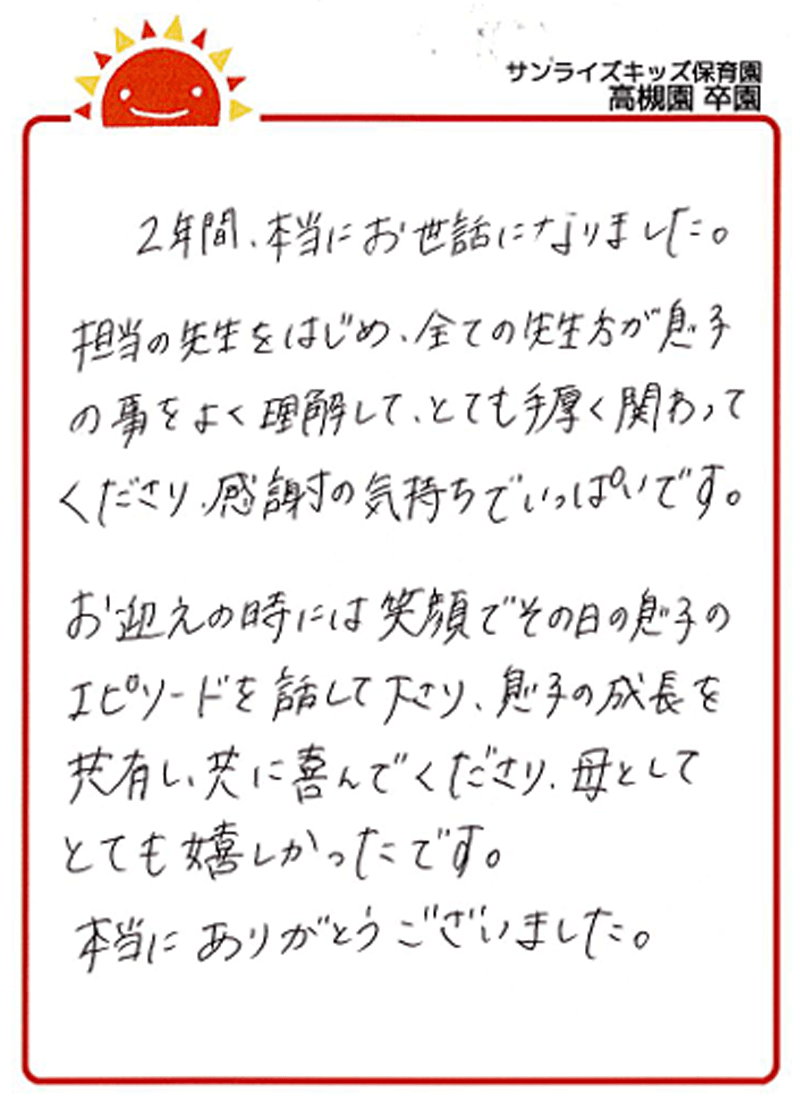 サンライズキッズ保育園
高槻園 卒園
2年間、本当にお世話になりました。
担当の先生をはじめ、全ての先生方が息子
の事をよく理解して、とても手厚く関わって
くださり、感謝の気持ちでいっぱいです。
お迎えの時には笑顔でその日の息子の
エピソードを話して下さり、息子の成長を
共有し、共に喜んでくださり、母として
とても嬉しかったです。
本当にありがとうございました。